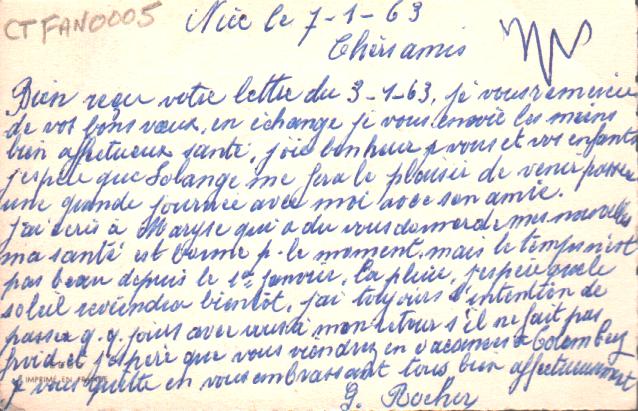 CTFAN0005
Nice le 7-1-63
Chers amis
Bien reçu votre lettre du 3-1-63, je vous remercie
de vos bons vœux, en échange je vous envoie les miens
bien affectueux santé, joie bonheur p vous et vos enfants
j'espère que Solange me fera le plaisir de venir passer
une grande journée avec moi avec son amie.
J'ai écris à Maryse qui a du vous donner de mes nouvelles
ma santé est bonne p. le moment, mais le temps n'est
pas beau depuis le 1er Janvier, la pluie, j'espère que le
soleil reviendra bientôt, j'ai toujours l'intention de
passer q.q. jours avec vous à mon retour s'il ne fait pas
froid et j'espère que vous viendrez en vacances à Colombey
je vous quitte en vous embrassant tous bien affectueusement
IMPRIMÉ EN FRANCE
G. Rocher